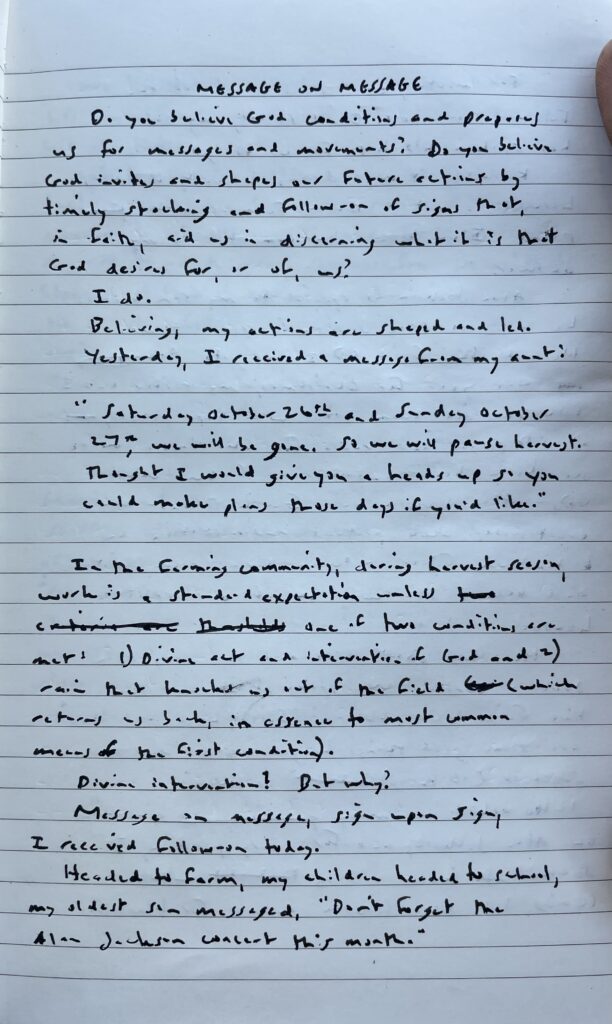 MESSAGE ON MESSAGE
Do you believe God conditions and prepares
us for messages and movements? Do you believe
God invites and shapes our future actions by
timely stacking and follow-on of signs that,
in faith, aid us in discerning what it is that
God desires for, or of, us?
I do.
Believing, my actions are shaped and led.
Yesterday, I received a message from my aunt:
"Saturday October 26th and Sunday October
27th, we will be gone. So we will pause harvest.
Thought I would give you a heads up so you
could make plans those days if you'd like."
In the farming community, during harvest season,
work is a standard expectation unless two
criteria are thresholds one of two conditions are
met: 1) Divine act and intervention of God and 2)
rain that knocks us out of the field (which
returns us back, in essence to most common
means of the first condition).
Divine intervention! But why?
Message on message, sign upon sign,
I received follow-on today.
Headed to farm, my children headed to school,
my oldest son messaged, "Don't forget the
Alan Jackson concert this month."